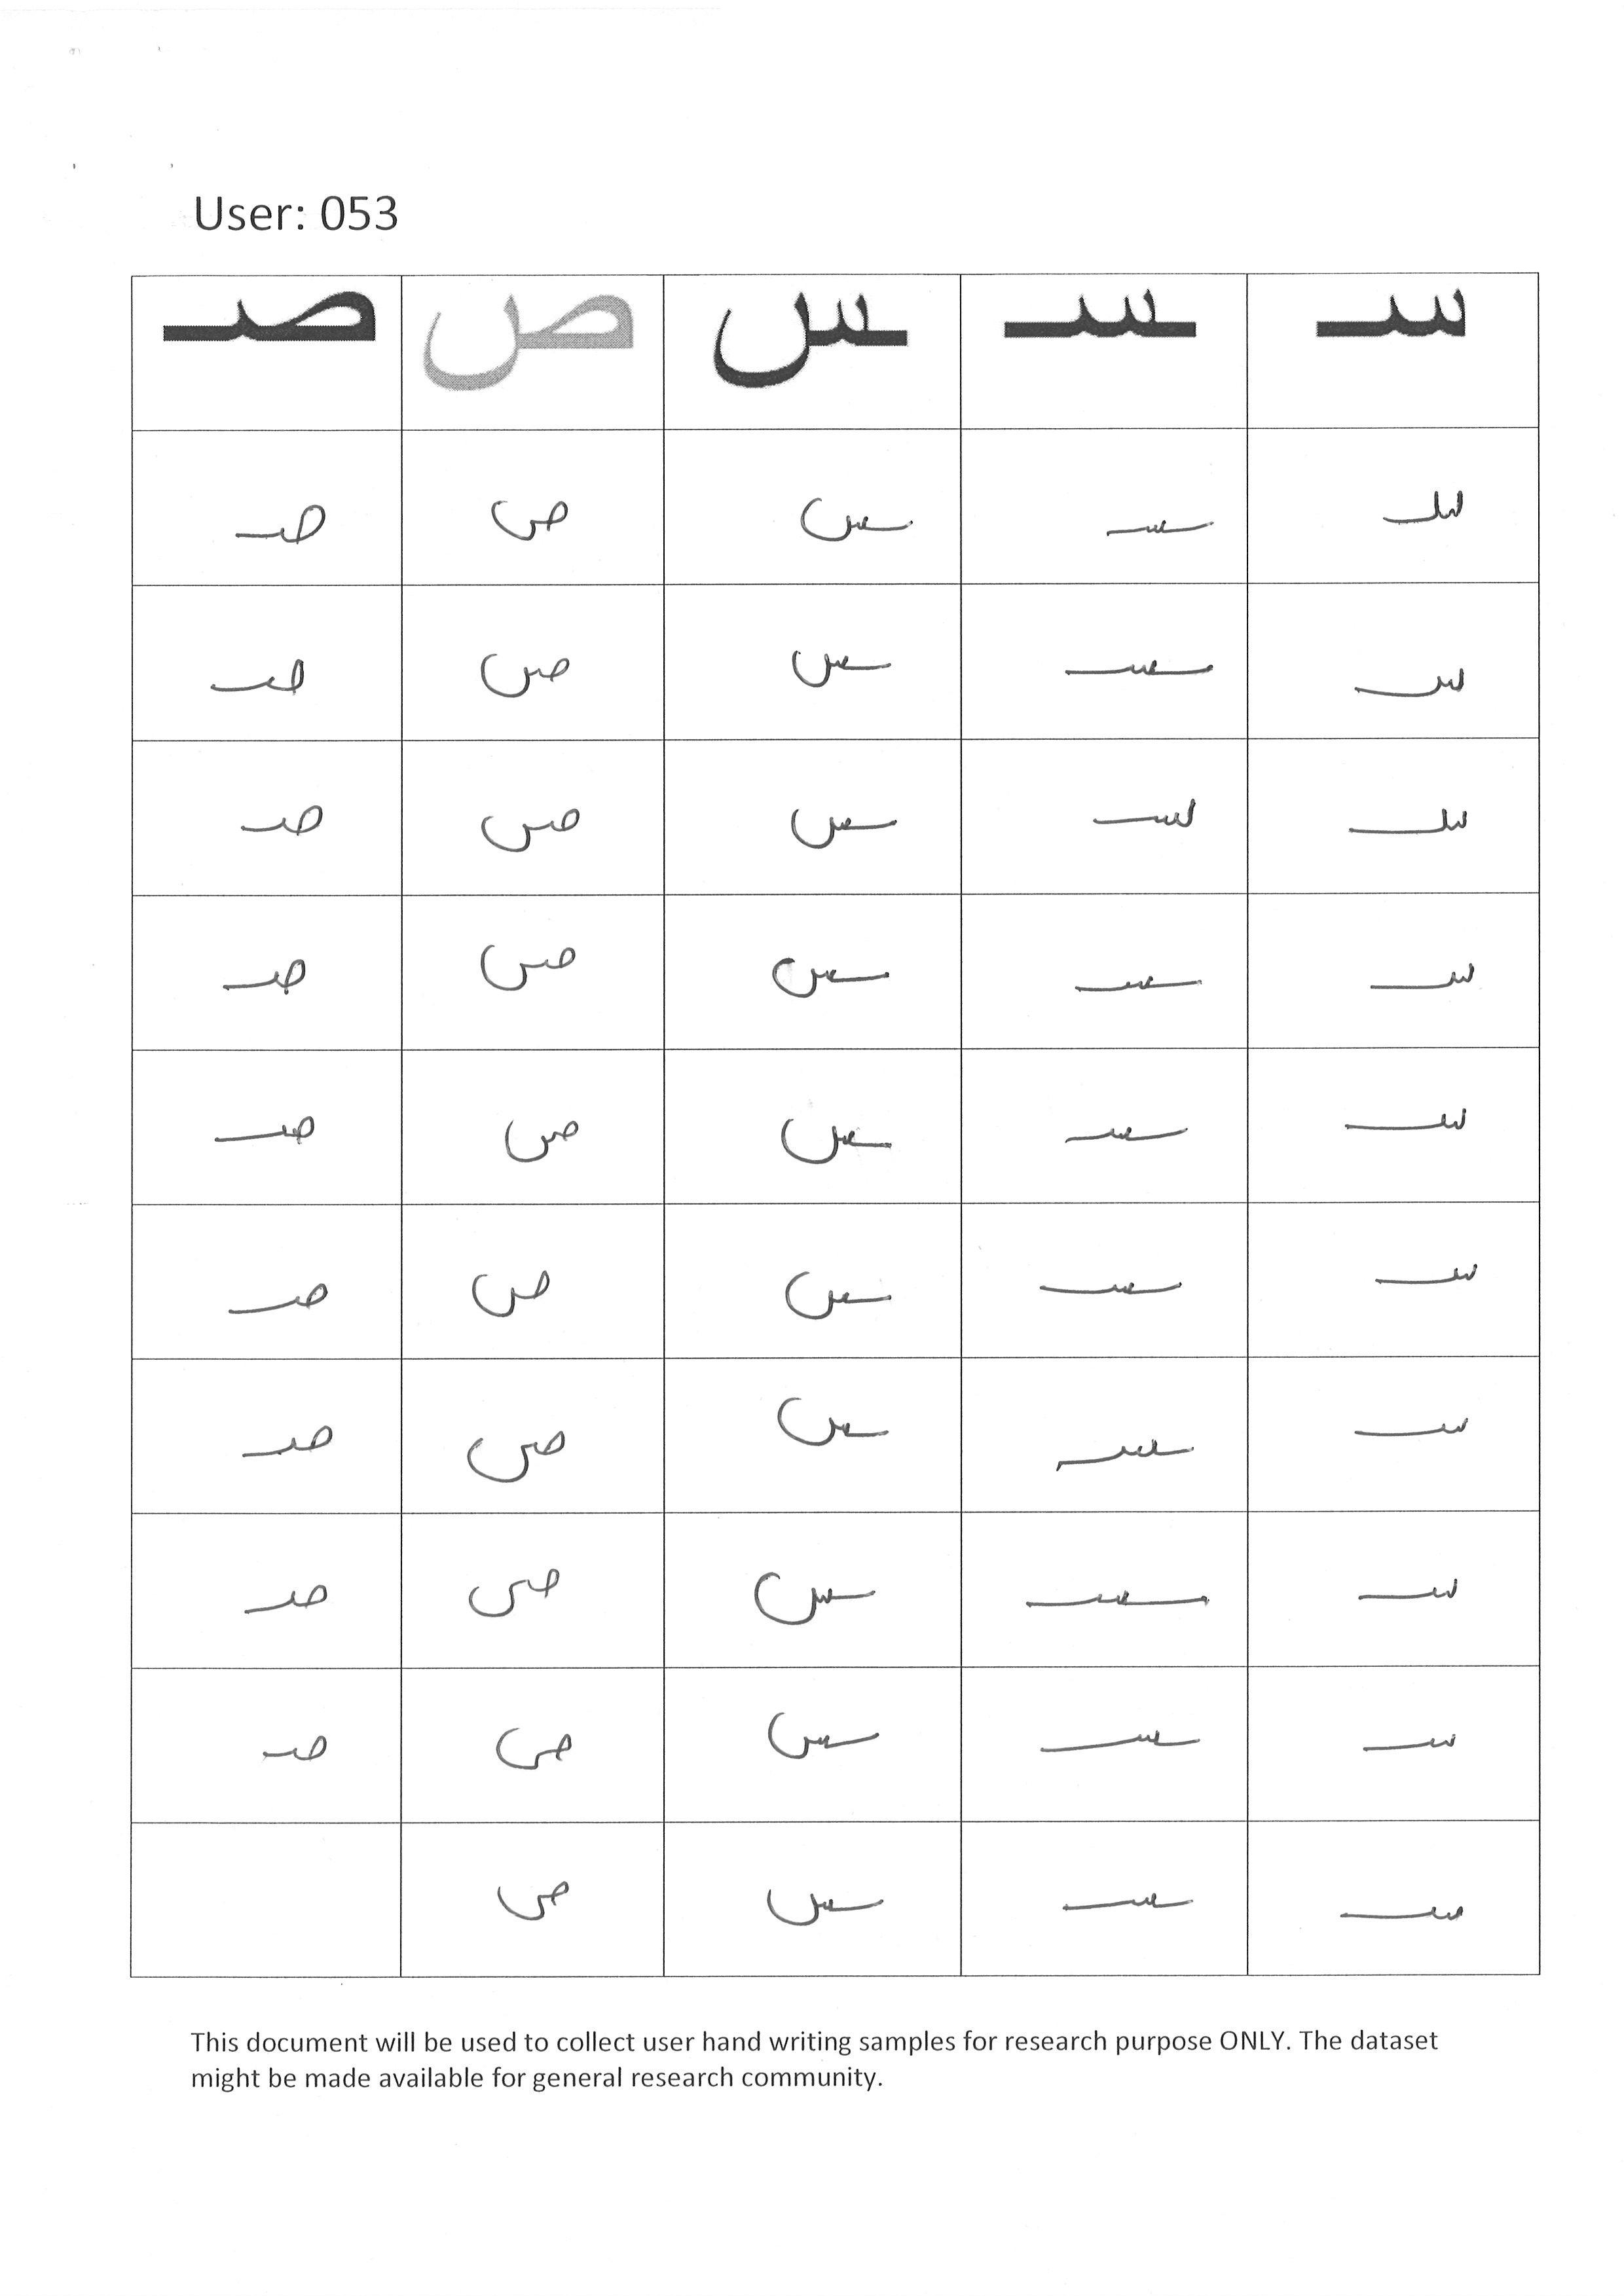 User: 053
سـ ـسـ ـس ص صـ
سـ ـسـ ـس ص صـ
سـ ـسـ ـس ص صـ
سـ ـسـ ـس ص صـ
سـ ـسـ ـس ص صـ
سـ ـسـ ـس ص صـ
سـ ـسـ ـس ص صـ
سـ ـسـ ـس ص صـ
سـ ـسـ ـس ص صـ
سـ ـسـ ـس ص صـ
سـ ـسـ ـس ص
This document will be used to collect user hand writing samples for research purpose ONLY. The dataset
might be made available for general research community.